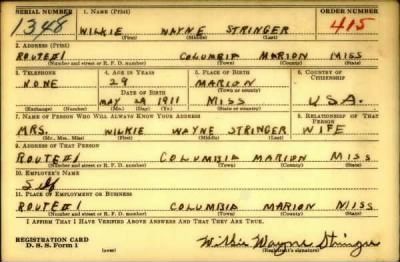 SERIAL NUMBER 1. NAME (Print) ORDER NUMBER
1348 WILKIE WAYNE STRINGER 415
(First) (Middle) (Last)
2. ADDRESS (Print)
ROUTE#1 COLUMBIA MARION MISS
(Number and street or R. F. D. number) (Town) (County) (State)
3. TELEPHONE 4. AGE IN YEARS 5. PLACE OF BIRTH 6. COUNTRY OF CITIZENSHIP
NONE 29 MARION
DATE OF BIRTH (Town or county)
MAY 29 1911 MISS U.S.A.
(Exchange) (Number) (Mo.) (Day) (Yr.) (State or country)
7. NAME OF PERSON WHO WILL ALWAYS KNOW YOUR ADDRESS 8. RELATIONSHIP OF THAT PERSON
MRS. WILKIE WAYNE STRINGER WIFE
(Mr., Mrs., Miss) (First) (Middle) (Last)
9. ADDRESS OF THAT PERSON
ROUTE#1 COLUMBIA MARION MISS.
(Number and street or R. F. D. number) (Town) (County) (State)
10. EMPLOYER'S NAME
Self
11. PLACE OF EMPLOYMENT OR BUSINESS
ROUTE#1 COLUMBIA MARION MISS
(Number and street or R. F. D. number) (Town) (County) (State)
I AFFIRM THAT I HAVE VERIFIED ABOVE ANSWERS AND THAT THEY ARE TRUE.
REGISTRATION CARD
D. S. S. Form 1 (over) Wilkie Wayne Stringer
(Registrant's signature)